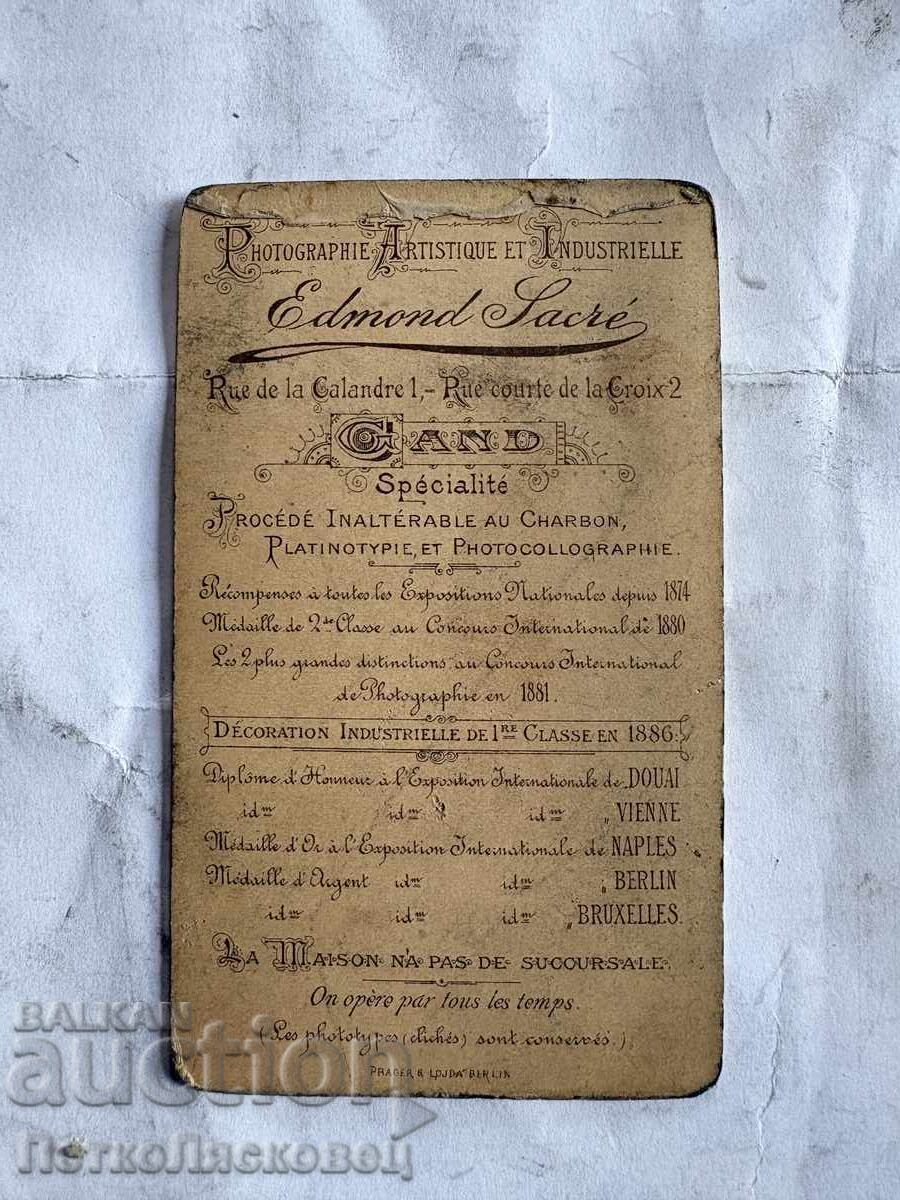 PHOTOGRAPHIE ARTISTIQUE ET INDUSTRIELLE
Edmond Sacré
Rue de la Calandre 1,- Rue courte de la Croix 2
GAND
Spécialité
PROCÉDÉ INALTÉRABLE AU CHARBON,
PLATINOTYPIE, ET PHOTOCOLLOGRAPHIE.
Récompenses à toutes les Expositions Nationales depuis 1874
Médaille de 2de Classe au Concours International de 1880
Les 2 plus grandes distinctions au Concours International
de Photographie en 1881.
DÉCORATION INDUSTRIELLE DE 1RE CLASSE EN 1886.
Diplôme d'Honneur à l'Exposition Internationale de DOUAI
idm idm idm „ VIENNE
Médaille d'Or à l'Exposition Internationale de NAPLES
Médaille d'Argent idm idm „ BERLIN
idm idm idm „ BRUXELLES.
LA MAISON N'A PAS DE SUCOURSALE.
On opère par tous les temps.
(Les phototypes (clichés) sont conservés.)
PRAGER & LOJDA BERLIN
BALKAN
auction
ПеткоЛясковец